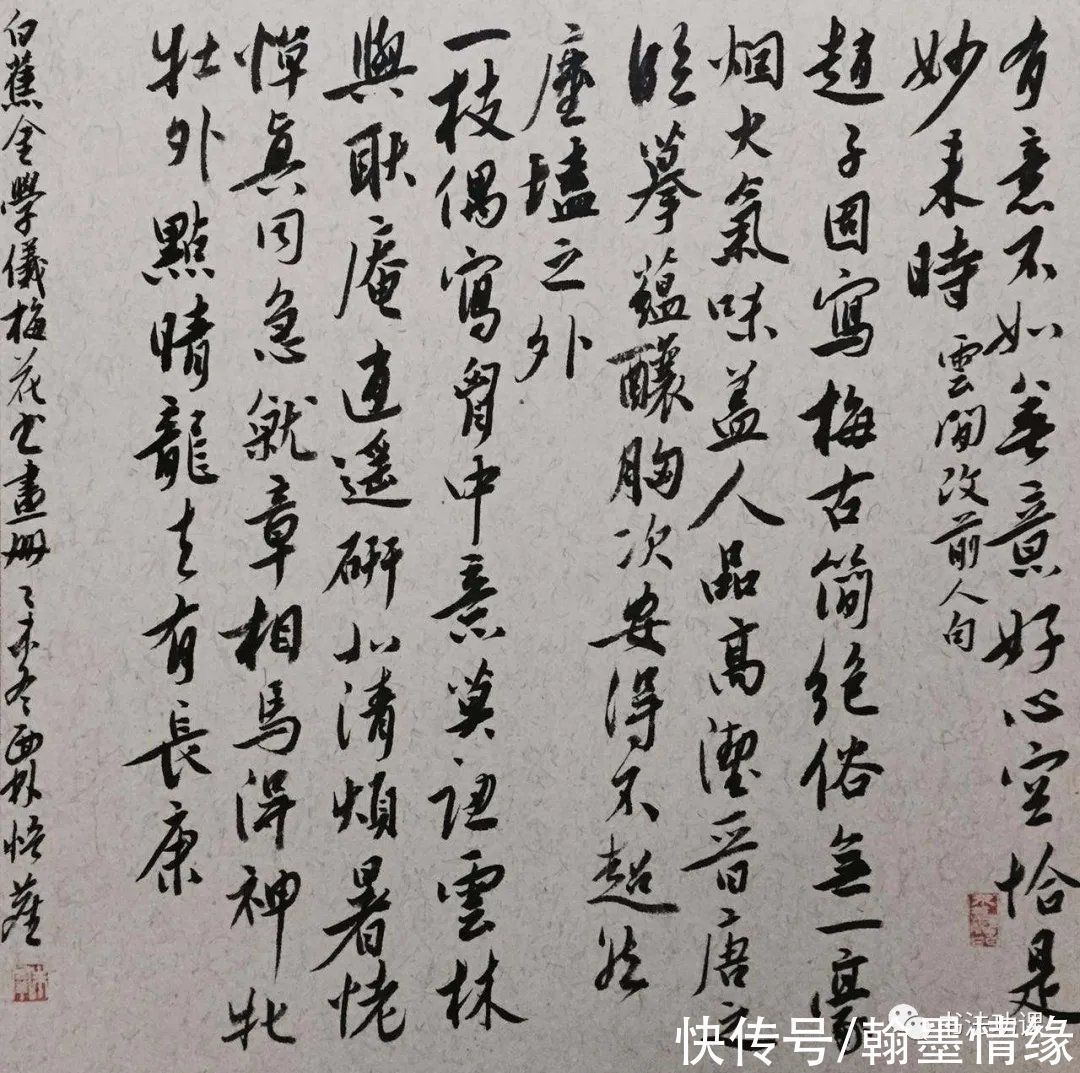 有意不如無意好心空恰是
妙来時 雲間改前人句
趙子固寫梅古簡絕俗無一毫
烟火氣味盖人品高潔晉唐之
臨摹蘊釀胸次安得不超然
塵壒之外
一枝偶寫胷中意莫認雲林
與耿庵逭遥研北清煩暑恅
愺真同急就章相馬得神牝
牡外點睛龍去有長康
白蕉金學儀梅花書畫册 乙未冬
书法助课
快传号/翰墨情缘